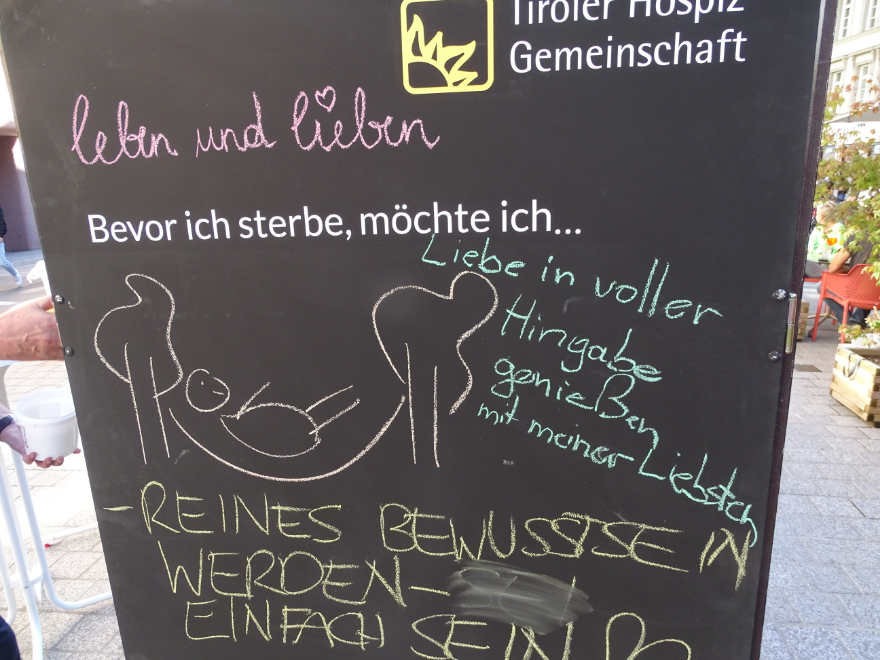 Tiroler Hospiz
Gemeinschaft
leben und lieben
Bevor ich sterbe, möchte ich...
Liebe in voller
Hingabe
genießen
mit meiner Liebsten
-REINES BEWUSSTSEIN
WERDEN-
EINFACH SEIN